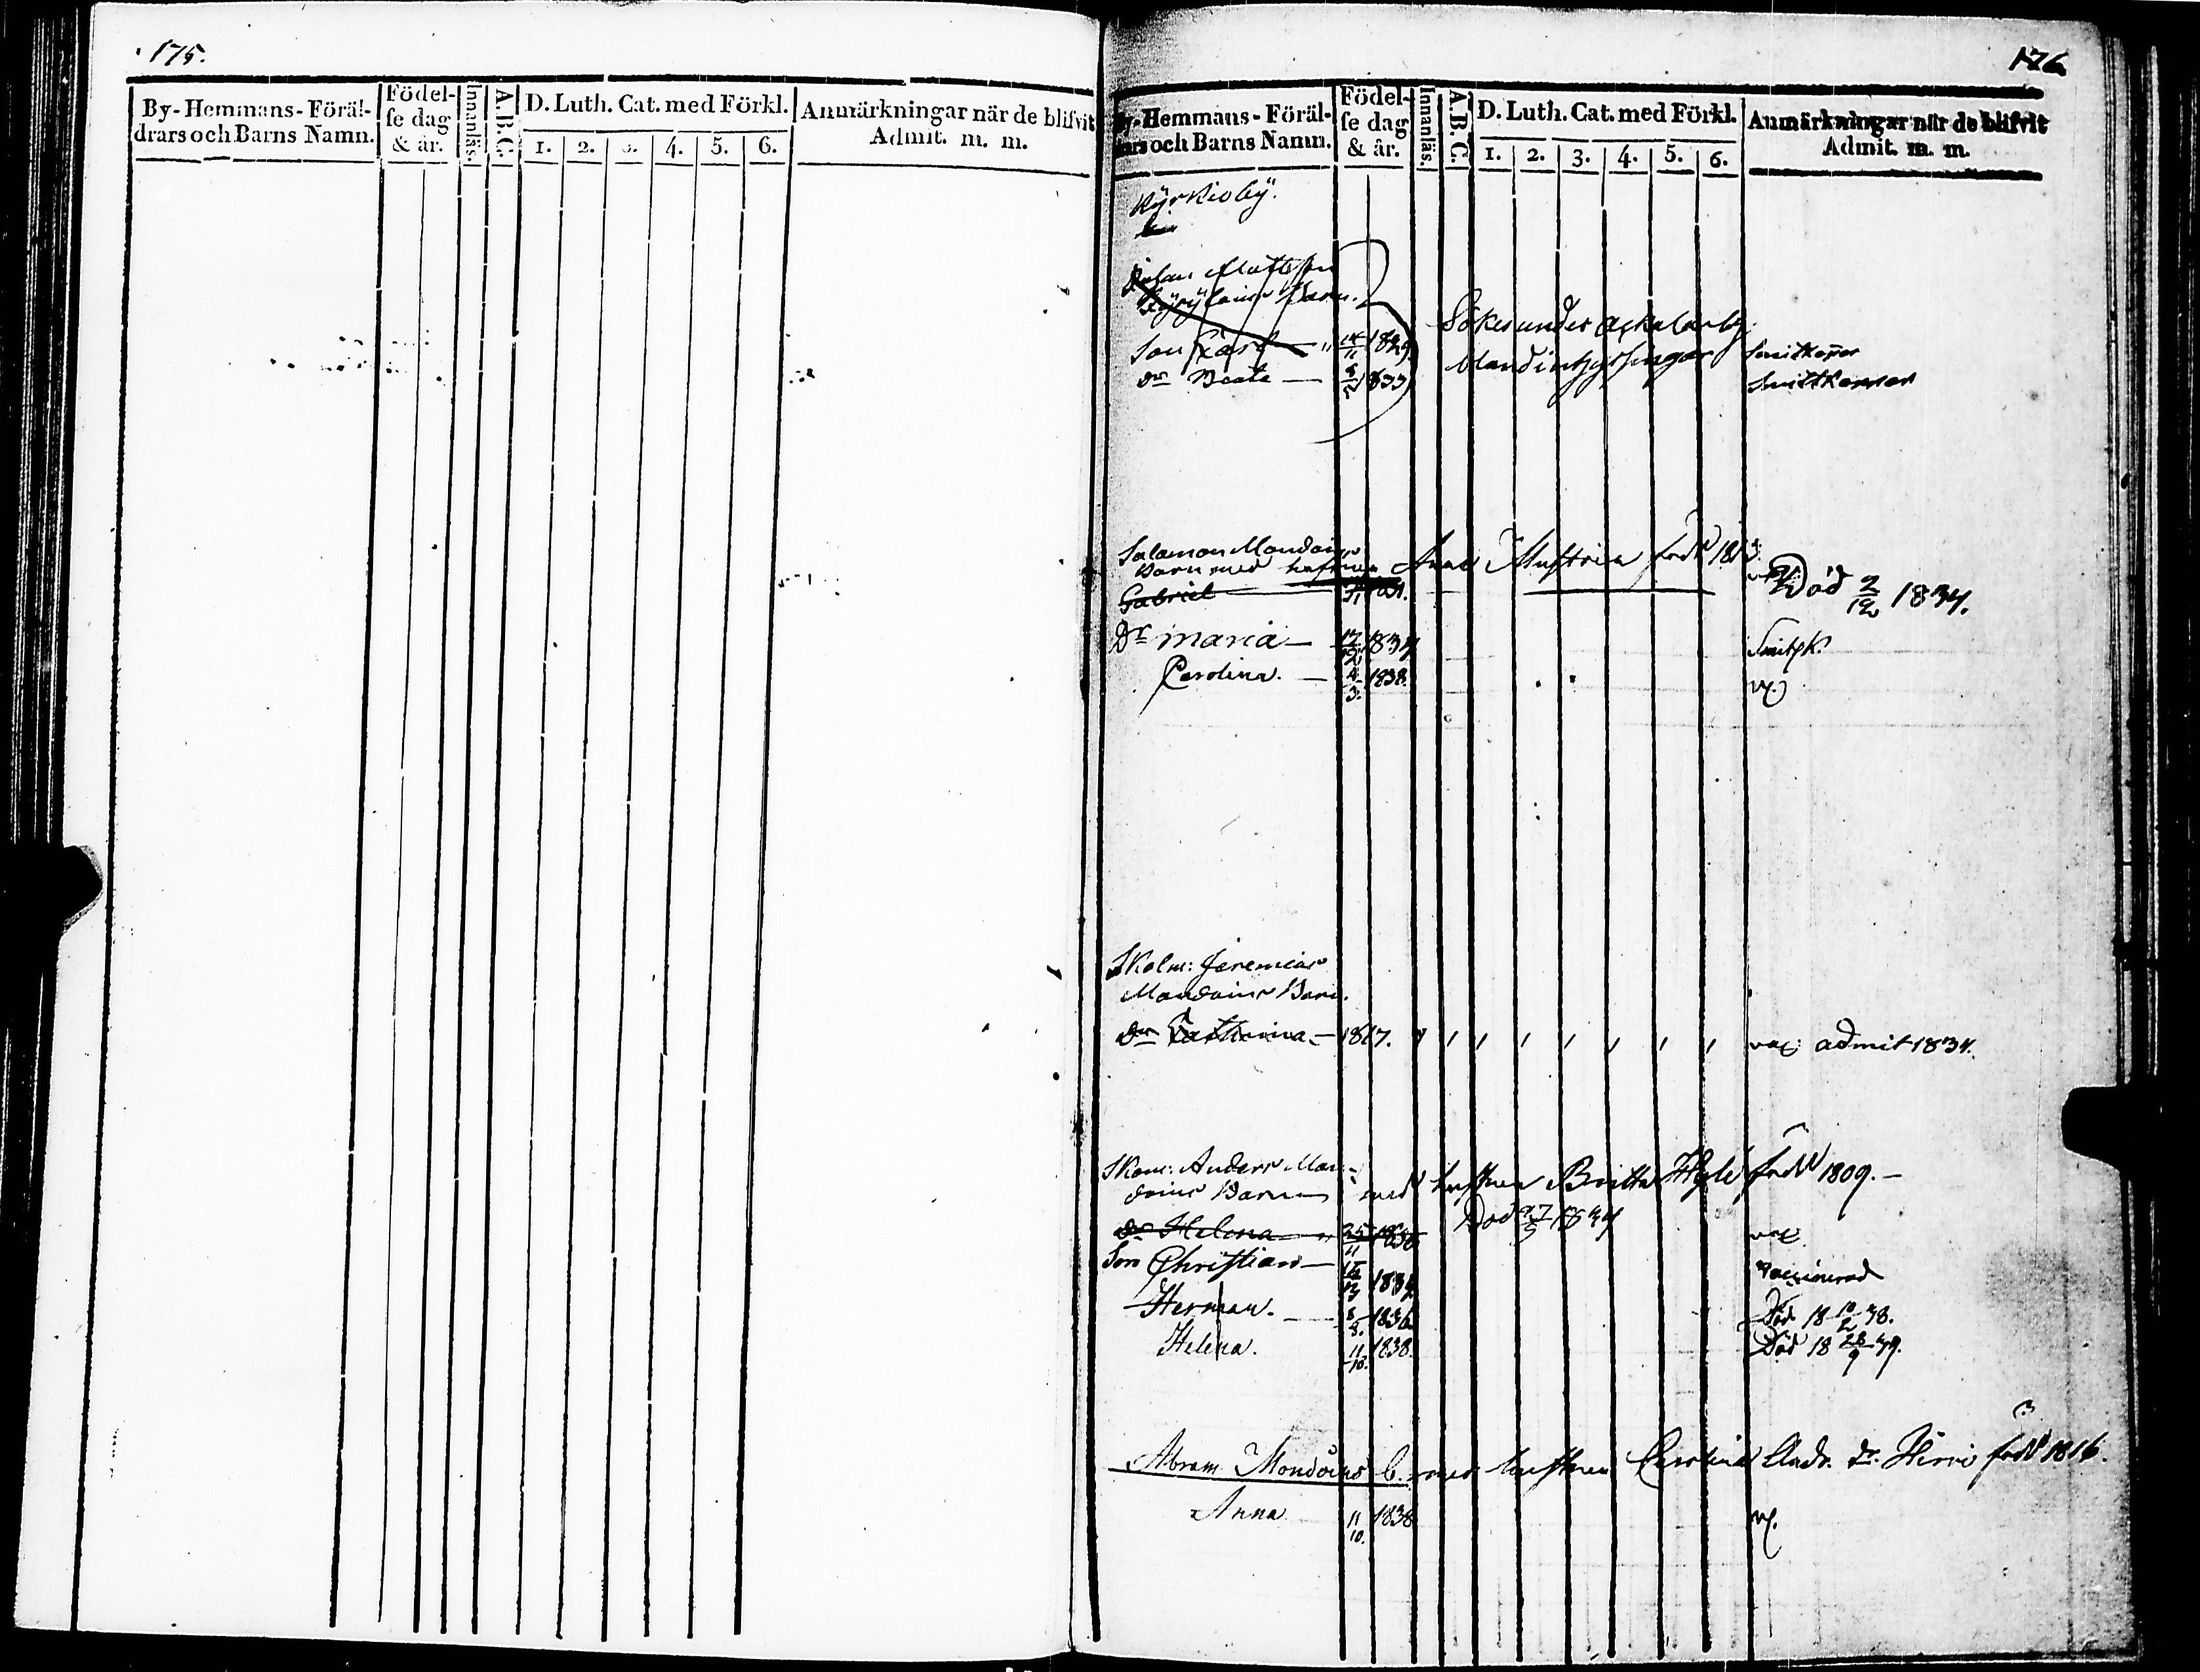 175.
By-Hemmans-Föräl-
drars och Barns Namn.
Födel-
se dag
& år.
Innanläs.
A.B.C.
D. Luth. Cat. med Förkl.
1. 2. 3. 4. 5. 6.
Anmärkningar när de blifvit
Admit. m. m.
176
By-Hemmans-Föräl-
drars och Barns Namn.
Födel-
se dag
& år.
Innanläs.
A.B.C.
D. Luth. Cat. med Förkl.
1. 2. 3. 4. 5. 6.
Anmärkningar när de blifvit
Admit. m. m.
Kyrkioby.
Johan Mattsson
Barn.
Sökes under
Son 1829 bland inhysingar Smitkopor
dr Beata — 1833 Smittkoppor
Salomon Mondoins
Barn med hustrun Anna född 1813.
Gabriel — Död 2/12 1834.
Dr Maria — 17/12 1834 Smitk.
Carolina. — 4/3. 1838. v.
Skolm: Jeremias
Mondoins Barn.
Dr Catharina — 1817. vac: admit 1834.
Skom: Anders Mon-
doins Barn med hustrun Britta född 1809. —
Dr Helena 25/11 Död 27/5 1834 vac
Son Christian — 1834 vaccinerad
Herman. — 8/8. 1836 Död 18 10/2 38.
Helena. 11/10. 1838. Död 18 28/9 39.
Abram Mondoins b. med hustrun Carolina Andr. dr. Hirvi född 1816.
Anna 11/10. 1838 v.